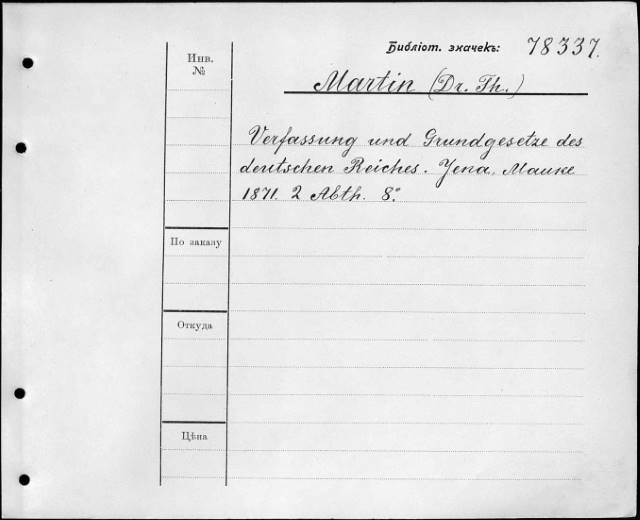 Библіот. значекъ: 78337.
Инв.
№
Martin (Dr. Th.)
Verfassung und Grundgesetze des
deutschen Reiches. Jena, Mauke
1871. 2 Abth. 8°.
По заказу
Откуда
Цѣна